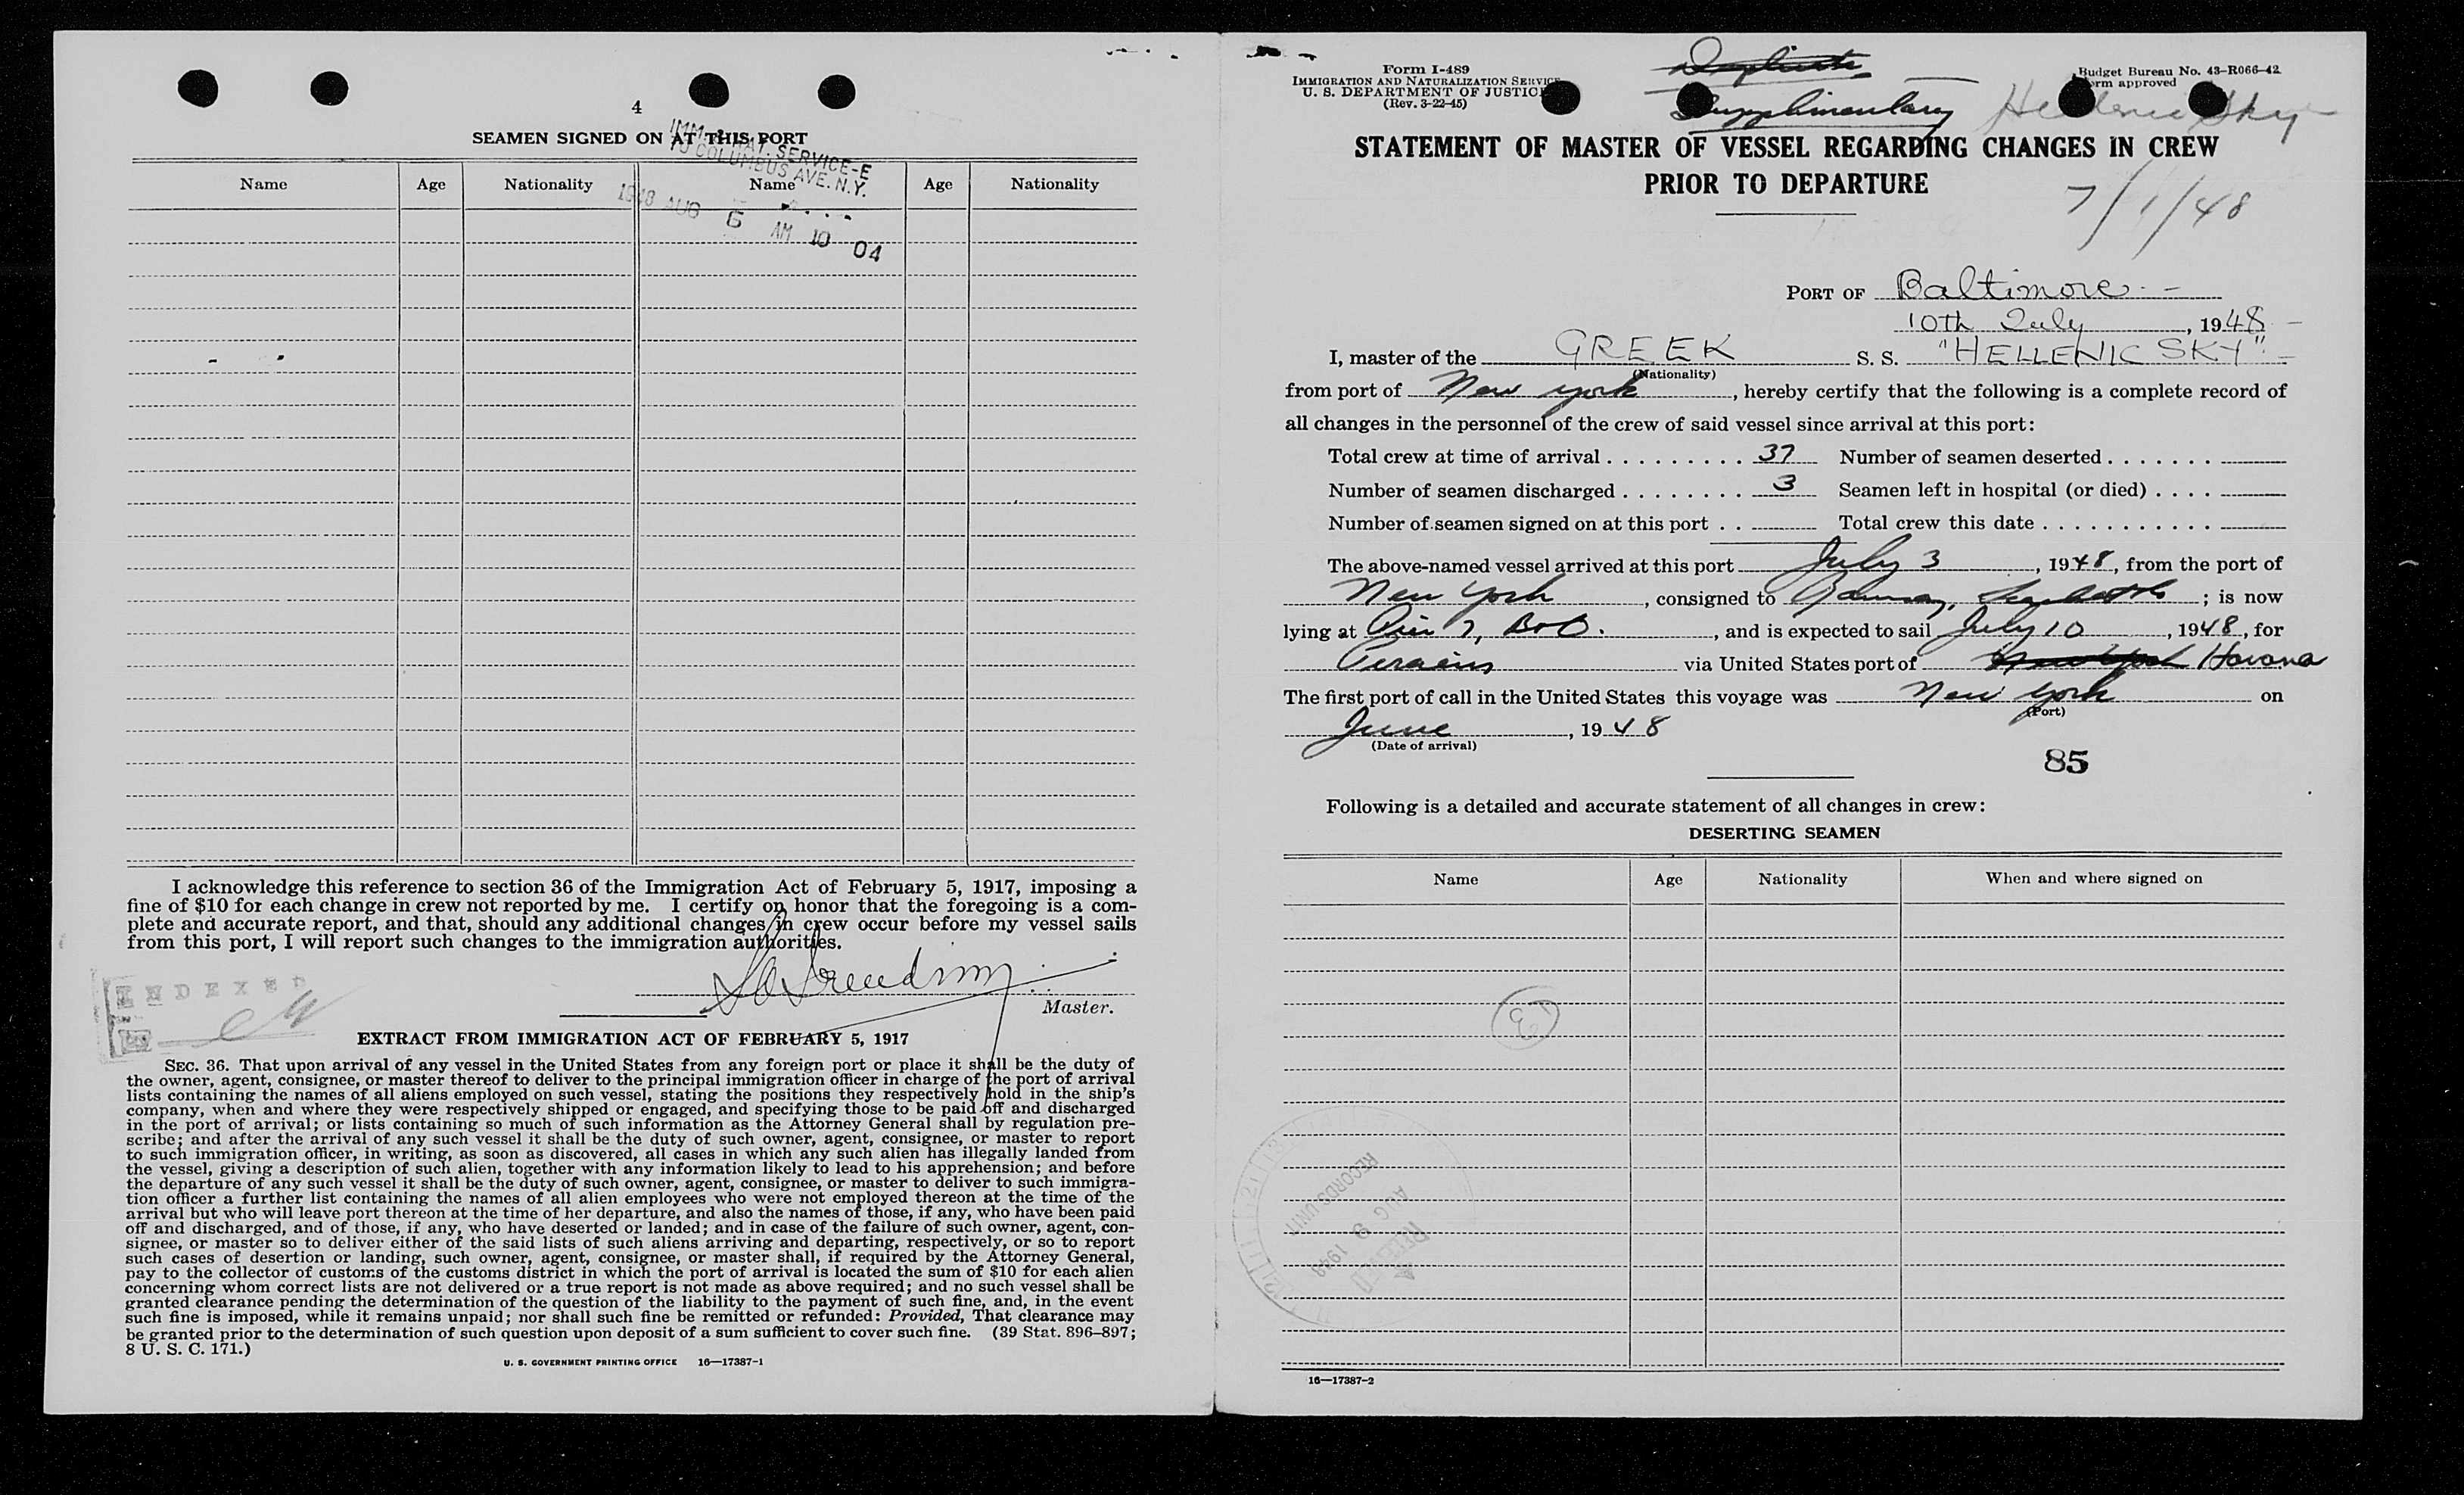 4
SEAMEN SIGNED ON AT THIS PORT
IMM. & NAT. SERVICE-E
70 COLUMBUS AVE. N.Y.
1948 AUG 6 AM 10 04
Name Age Nationality Name Age Nationality
I acknowledge this reference to section 36 of the Immigration Act of February 5, 1917, imposing a
fine of $10 for each change in crew not reported by me. I certify on honor that the foregoing is a com-
plete and accurate report, and that, should any additional changes in crew occur before my vessel sails
from this port, I will report such changes to the immigration authorities.
INDEXED
Master.
EXTRACT FROM IMMIGRATION ACT OF FEBRUARY 5, 1917
SEC. 36. That upon arrival of any vessel in the United States from any foreign port or place it shall be the duty of
the owner, agent, consignee, or master thereof to deliver to the principal immigration officer in charge of the port of arrival
lists containing the names of all aliens employed on such vessel, stating the positions they respectively hold in the ship's
company, when and where they were respectively shipped or engaged, and specifying those to be paid off and discharged
in the port of arrival; or lists containing so much of such information as the Attorney General shall by regulation pre-
scribe; and after the arrival of any such vessel it shall be the duty of such owner, agent, consignee, or master to report
to such immigration officer, in writing, as soon as discovered, all cases in which any such alien has illegally landed from
the vessel, giving a description of such alien, together with any information likely to lead to his apprehension; and before
the departure of any such vessel it shall be the duty of such owner, agent, consignee, or master to deliver to such immigra-
tion officer a further list containing the names of all alien employees who were not employed thereon at the time of the
arrival but who will leave port thereon at the time of her departure, and also the names of those, if any, who have been paid
off and discharged, and of those, if any, who have deserted or landed; and in case of the failure of such owner, agent, con-
signee, or master so to deliver either of the said lists of such aliens arriving and departing, respectively, or so to report
such cases of desertion or landing, such owner, agent, consignee, or master shall, if required by the Attorney General,
pay to the collector of customs of the customs district in which the port of arrival is located the sum of $10 for each alien
concerning whom correct lists are not delivered or a true report is not made as above required; and no such vessel shall be
granted clearance pending the determination of the question of the liability to the payment of such fine, and, in the event
such fine is imposed, while it remains unpaid; nor shall such fine be remitted or refunded: Provided, That clearance may
be granted prior to the determination of such question upon deposit of a sum sufficient to cover such fine. (39 Stat. 896–897;
8 U. S. C. 171.)
U. S. GOVERNMENT PRINTING OFFICE 16—17387-1
Form I-489
IMMIGRATION AND NATURALIZATION SERVICE
U. S. DEPARTMENT OF JUSTICE
(Rev. 3-22-45)
Duplicate
Supplimentary
Budget Bureau No. 43-R066-42
Form approved
Hellenic Sky
STATEMENT OF MASTER OF VESSEL REGARDING CHANGES IN CREW
PRIOR TO DEPARTURE
7/1/48
PORT OF Baltimore
10th July, 1948
I, master of the GREEK S. S. "HELLENIC SKY"
(Nationality)
from port of New York, hereby certify that the following is a complete record of
all changes in the personnel of the crew of said vessel since arrival at this port:
Total crew at time of arrival 37 Number of seamen deserted
Number of seamen discharged 3 Seamen left in hospital (or died)
Number of seamen signed on at this port Total crew this date
The above-named vessel arrived at this port July 3, 1948, from the port of
New York, consigned to Ramsay, ; is now
lying at Pier 7, B&O., and is expected to sail July 10, 1948, for
Piraeus via United States port of New York Havana
The first port of call in the United States this voyage was New York on
(Port)
June, 1948
(Date of arrival)
85
Following is a detailed and accurate statement of all changes in crew:
DESERTING SEAMEN
Name Age Nationality When and where signed on
RECORDS UNIT
AUG 9 1948
RECEIVED
16—17387-2